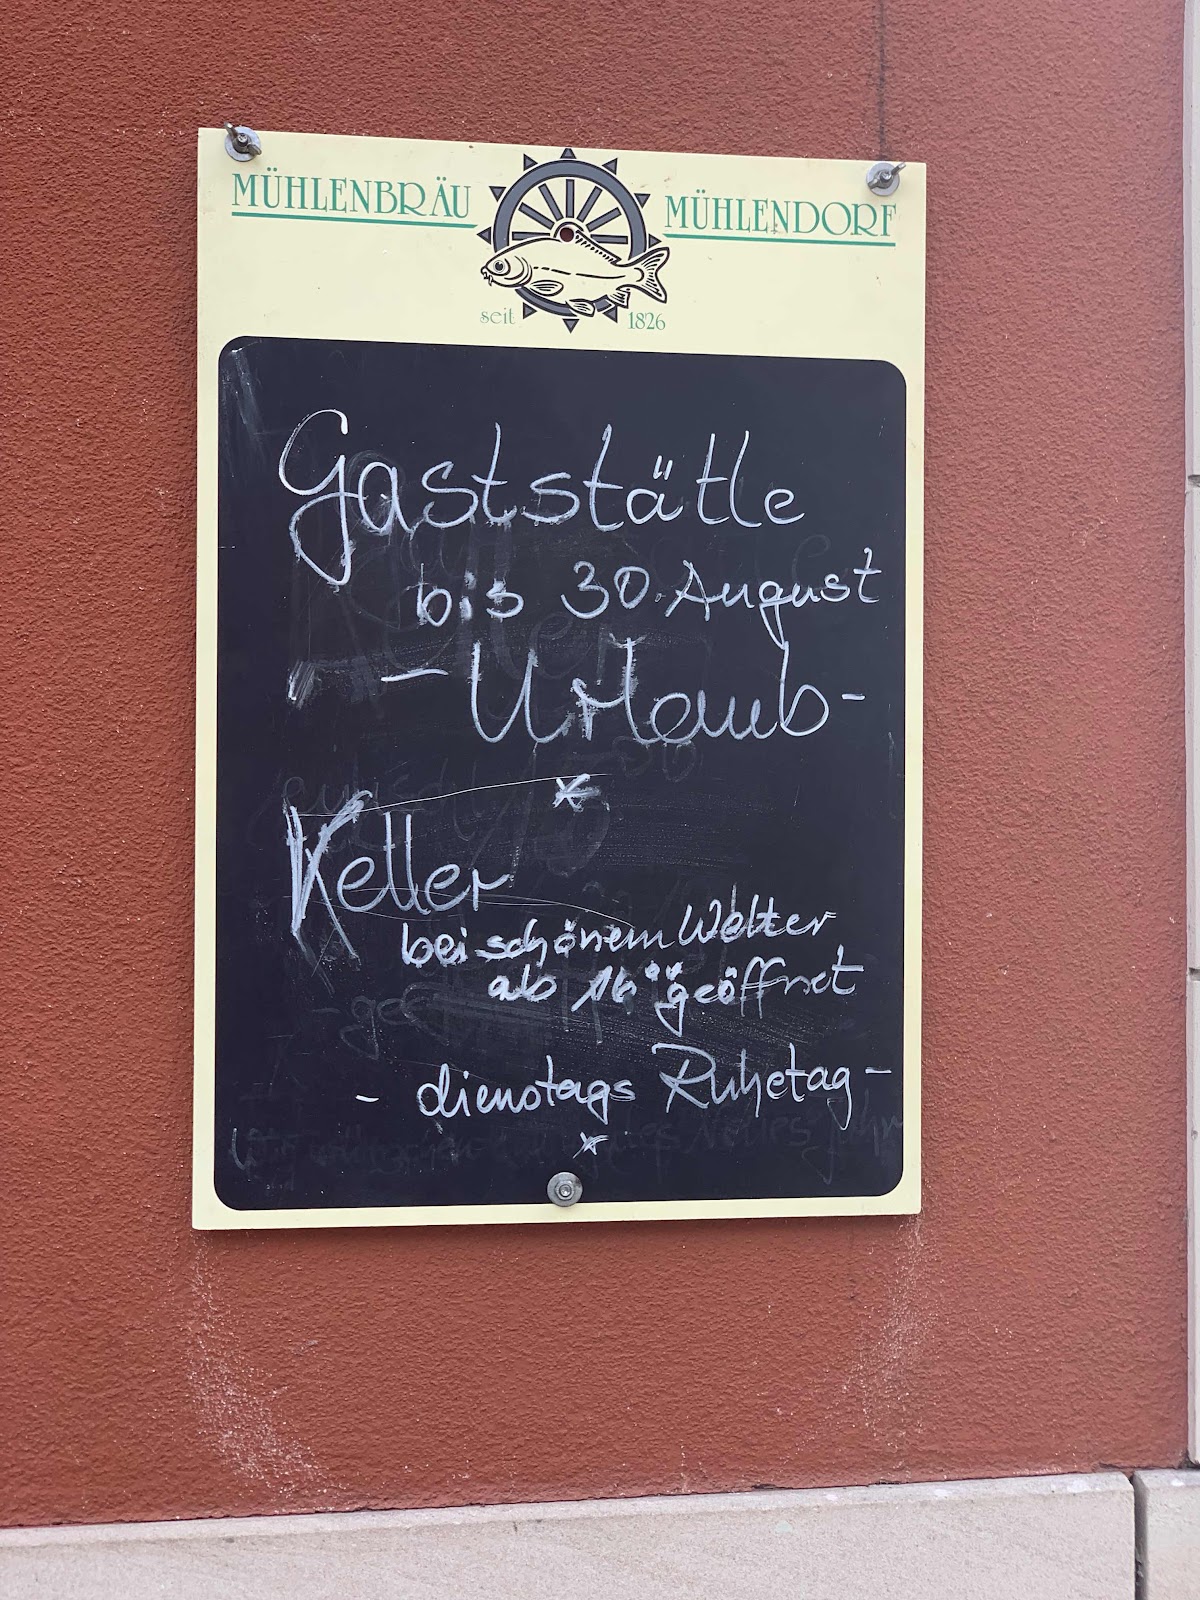 MÜHLENBRÄU MÜHLENDORF
seit 1826
Gaststätte
bis 30. August
- Urlaub -
Keller
bei schönem Wetter
ab 16°° geöffnet
- dienstags Ruhetag -